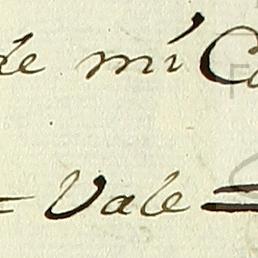 de mi C
= Vale =